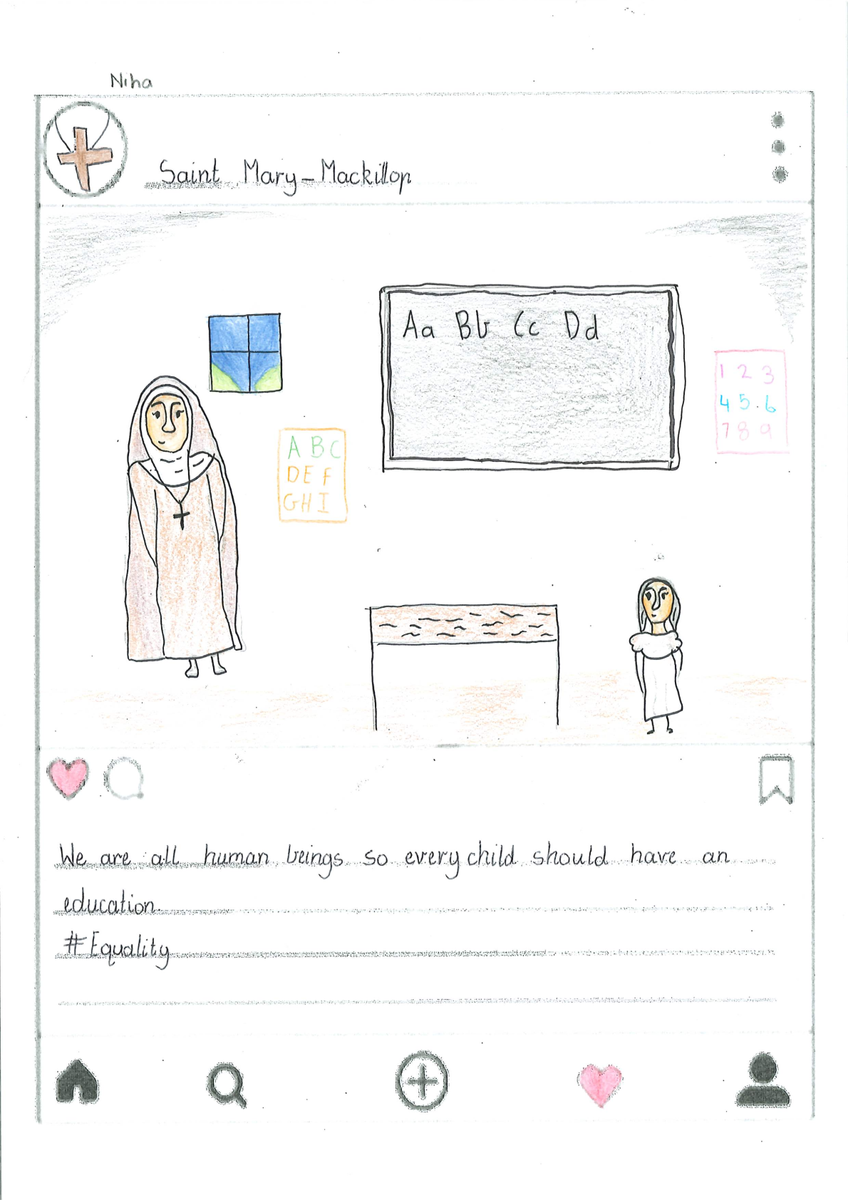 Niha
Saint Mary-Mackillop
Aa Bb Cc Dd
1 2 3
4 5 6
7 8 9
A B C
D E F
G H I
We are all human beings so every child should have an
education.
#Equality